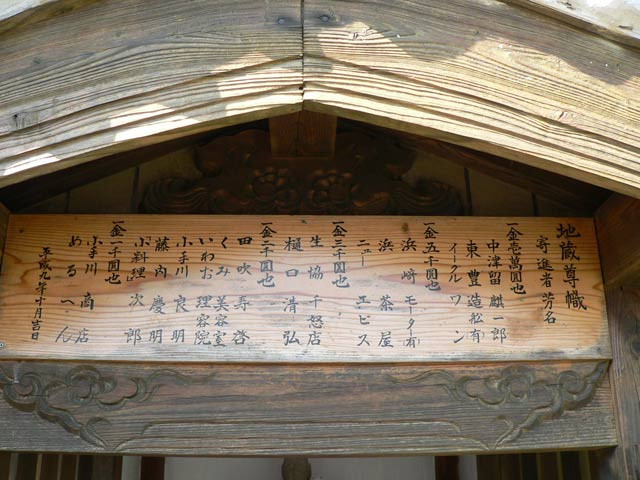 地蔵尊幟
寄進者芳名
一金壱萬圓也
中津留 麒一郎
東豊造船有
イータルワン
一金五千圓也
浜崎モーター有
浜茶屋
ニューエビス
一金三千圓也
生協千怒店
樋口清弘
一金二千圓也
田吹寿啓
くみ美容室
いわお理容院
小手川良明
藤内慶明
小料理次郎
一金一千圓也
小手川商店
めるへん
平成九年十月吉日